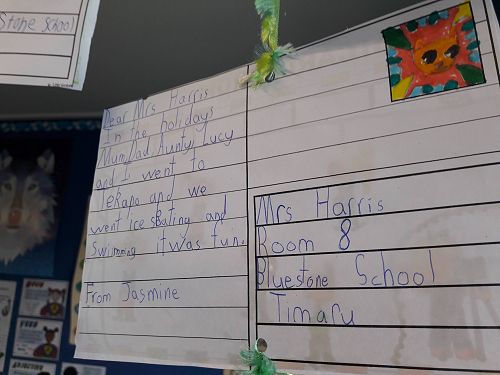 Stone School
Dear Mrs Harris
In the holidays
Mum, Dad Aunty, Lucy
and I went to
Tekapo and we
went ice skating and
swimming it was fun.
From Jasmine
Mrs Harris
Room 8
Bluestone School
Timaru